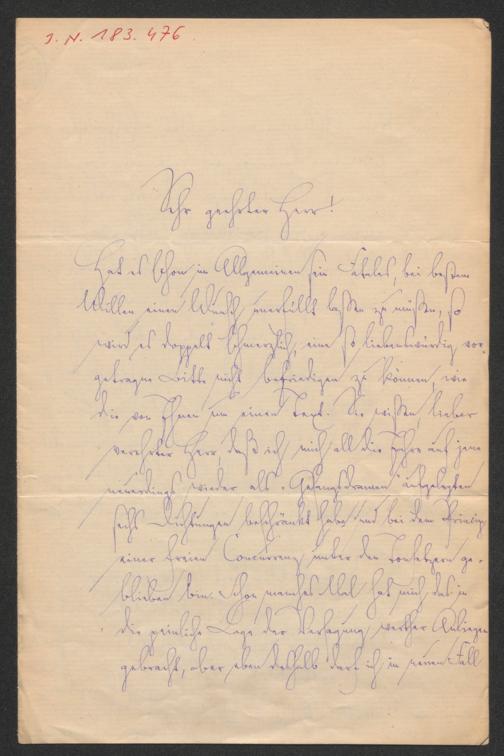 I. N. 183.476
Sehr geehrter Herr!
Hat es schon im Allgemeinen sein Fatales, bei bestem
Willen einen Wunsch unerfüllt lassen zu müssen, so
wird es doppelt schmerzlich, eine so liebenswürdig vor-
getragne Bitte nicht befriedigen zu können, wie
die von Ihnen um einen Text. Sie wissen, lieber
verehrter Herr, daß ich mich all die Jahre auf jene
neuerdings wieder als "Gesangsdramen" aufgelegten
sechs Dichtungen beschränkt habe und bei dem Prinzip
einer freien Concurrenz unter den Tonsetzern ge-
blieben bin. Schon manches Mal hat mich das in
die peinliche Lage der Versagung werther Anliegen
gebracht, aber eben deshalb darf ich im neuen Fall